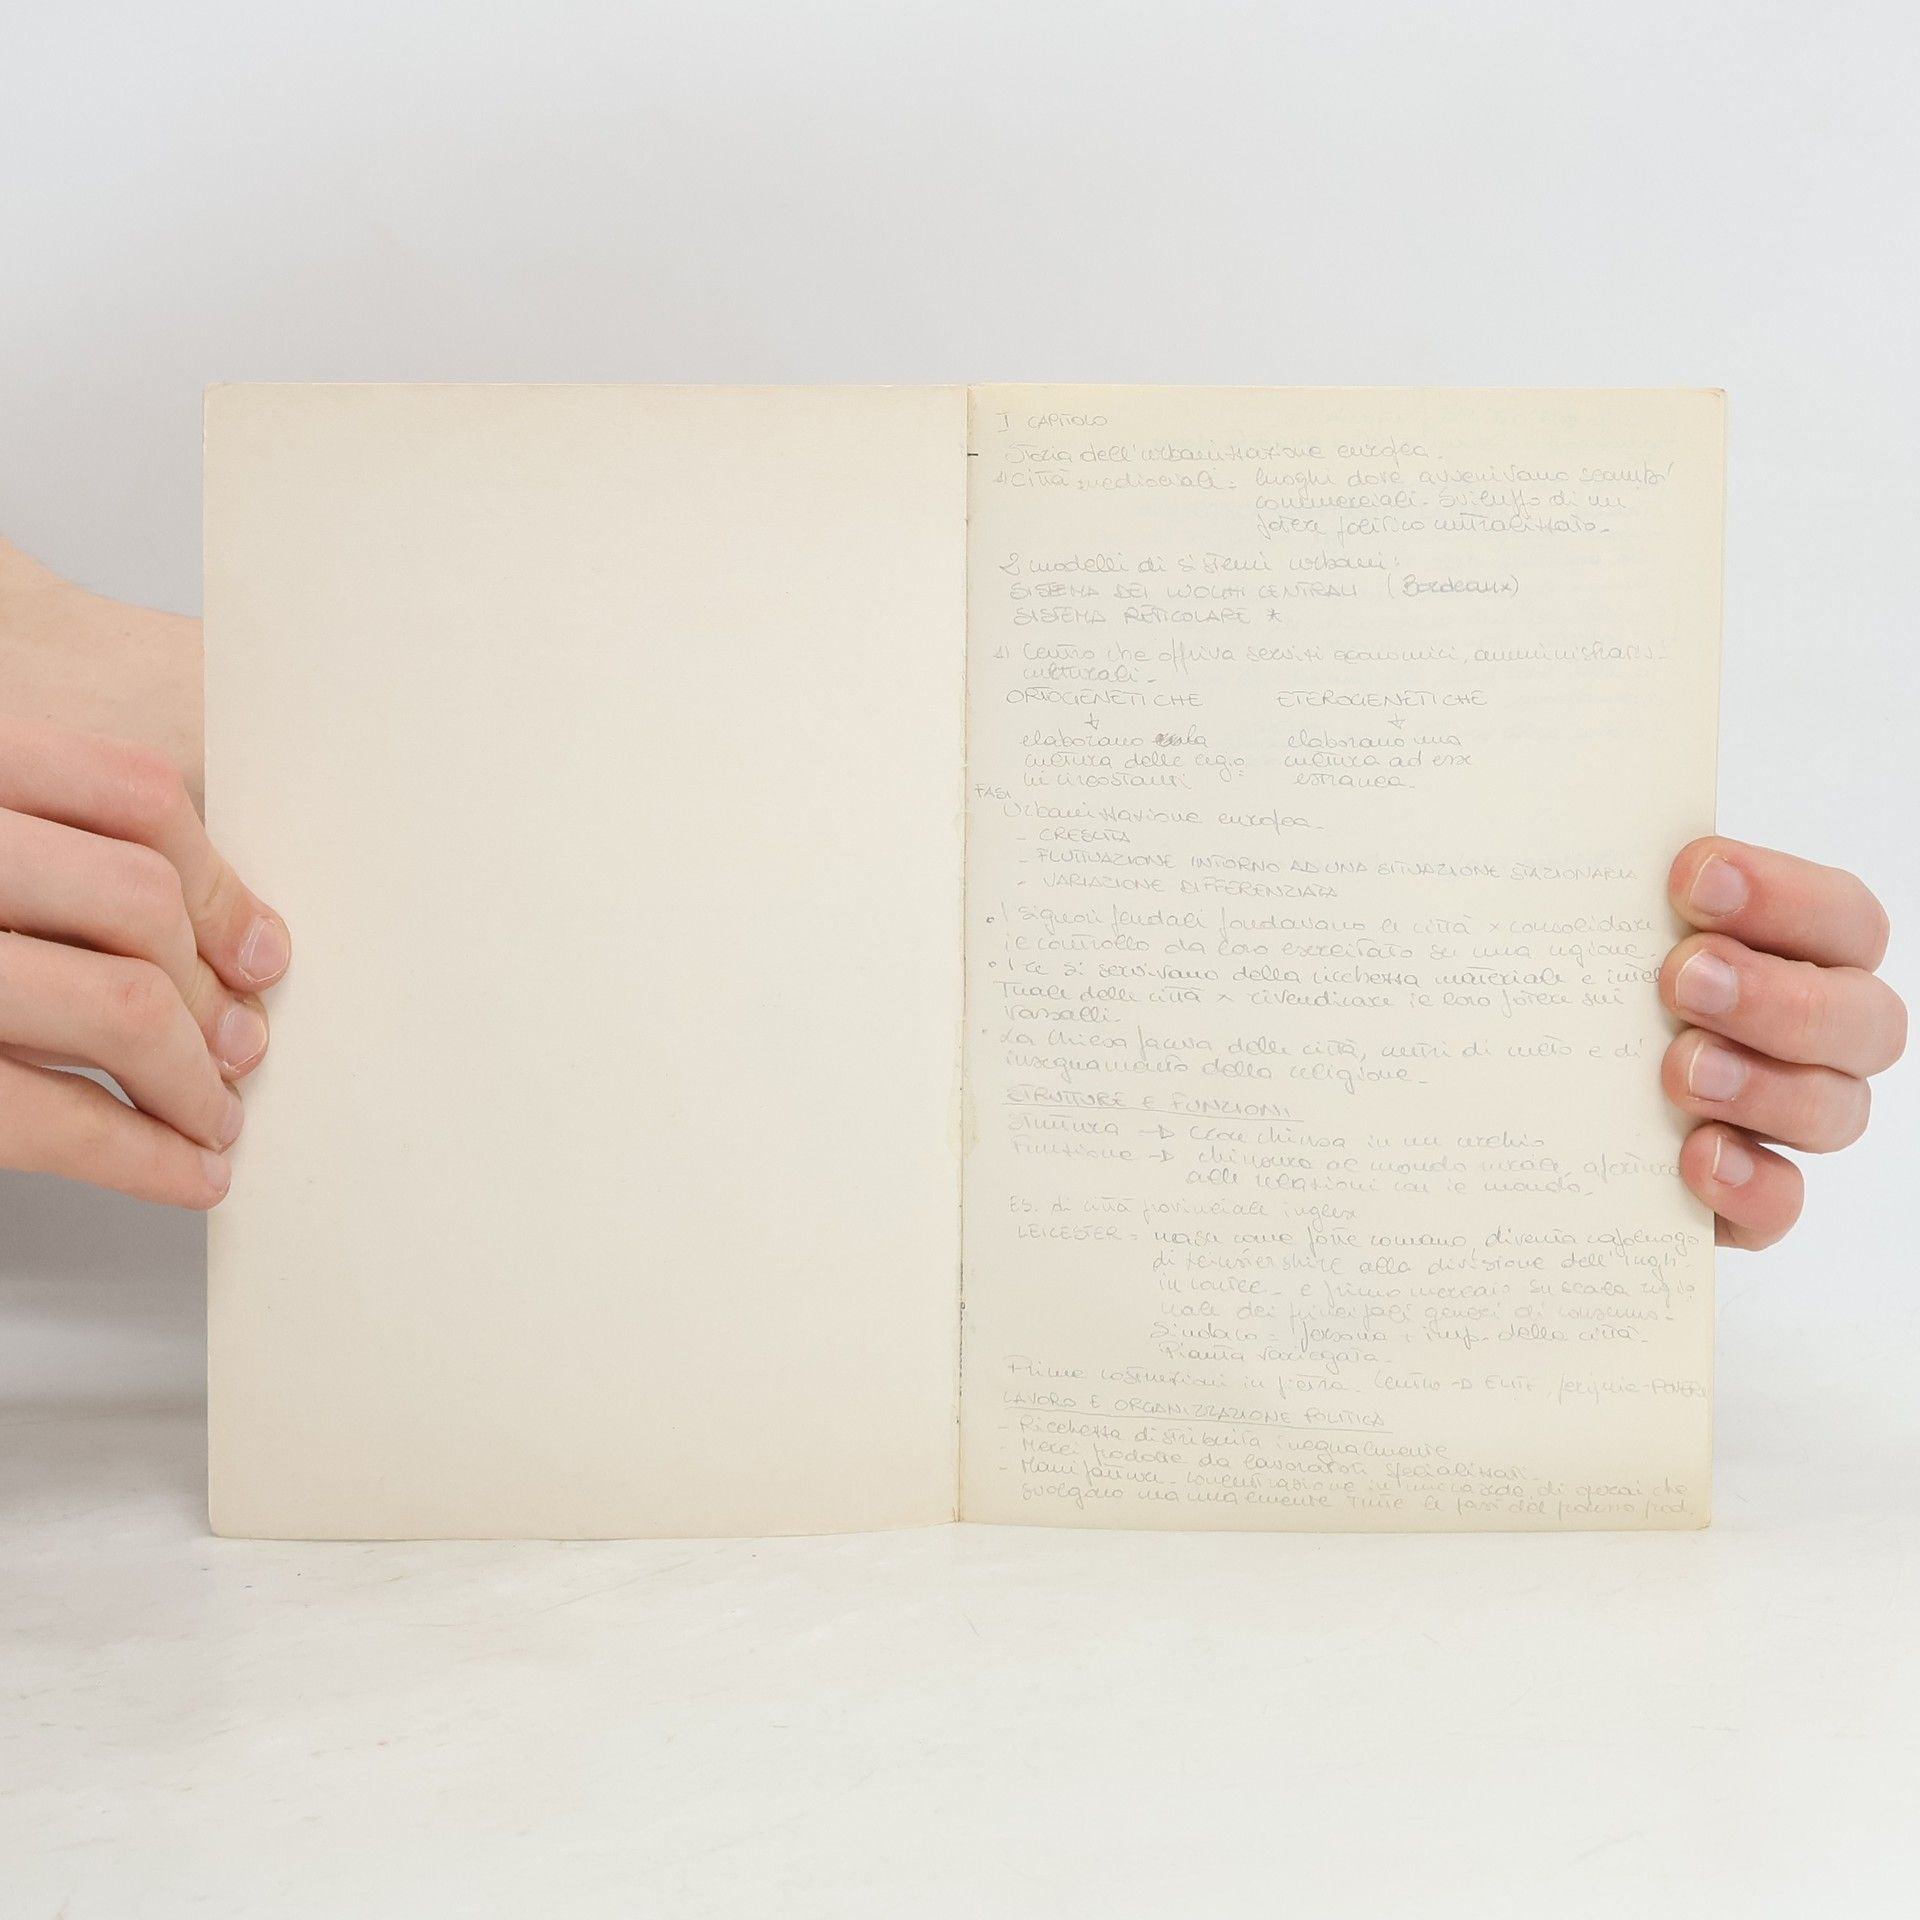 I CAPITOLO
Storia dell'urbanizzazione europea.
1) Città medioevali: luoghi dove avvenivano scambi
commerciali. Sviluppo di un
potere politico centralizzato.
2 modelli di sistemi urbani:
SISTEMA DEI LUOGHI CENTRALI (Bordeaux)
SISTEMA RETICOLARE *
1) Centro che offriva servizi economici, amministrativi
culturali.
ORTOGENETICHE ETEROGENETICHE
↓ ↓
elaborano la elaborano una
cultura delle regio cultura ad esse
ni circostanti estranea.
FASI
Urbanizzazione europea.
- CRESCITA
- FLUTTUAZIONE INTORNO AD UNA SITUAZIONE STAZIONARIA
- VARIAZIONE DIFFERENZIATA
• I signori feudali fondavano le città x consolidare
il controllo da loro esercitato su una regione.
• I re si servivano della ricchezza materiale e intel
tuale delle città x rivendicare il loro potere sui
vassalli.
• La Chiesa faceva delle città, centri di culto e di
insegnamento della religione.
STRUTTURE E FUNZIONI
Struttura → croce chiusa in un cerchio
Funzione → chiusura al mondo rurale, apertura
alle relazioni con il mondo.
ES. di città provinciale inglese
LEICESTER = nasce come forte romano, diventa capoluogo
di Leicestershire alla divisione dell'Ingh.
in contee. e primo mercato su scala regio
nale dei principali generi di consumo.
Sindaco = persona + imp. della città.
Pianta variegata.
Prime costruzioni in pietra. Centro → ELITE, periferia - POVERI
LAVORO E ORGANIZZAZIONE POLITICA
- Ricchezza distribuita inegualmente
- Merci prodotte da lavoratori specializzati.
- Manifattura - concentrazione in di operai che
svolgono manualmente tutte le fasi del processo prod.